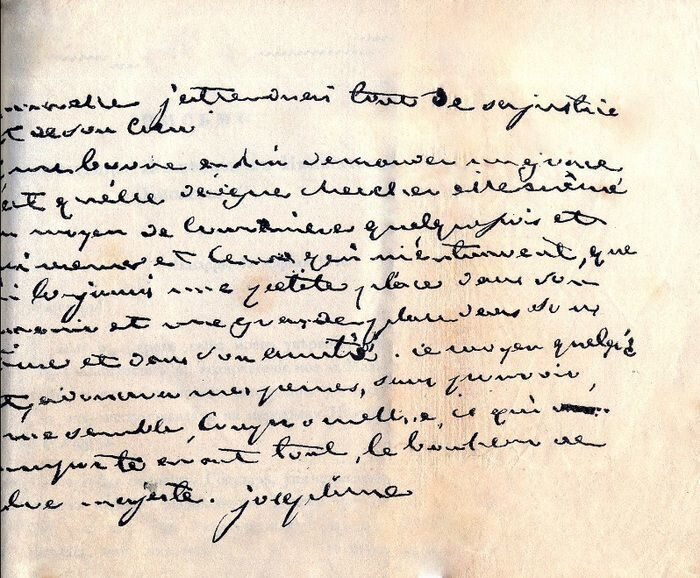 j'attendrai tout de sa justice
et de son cœur
me borne à lui demander une grace
c'est qu'elle daigne chercher elle même
un moyen de convaincre quelquefois et
et ceux qui m'entourent, que
j'ai toujours une petite place dans son
et une grande place dans son
et dans son amitié. ce moyen quelqu'il
adoucira mes peines, sans pouvoir,
me semble, compromettre, ce qui
importe avant tout, le bonheur de
votre majesté. joséphine